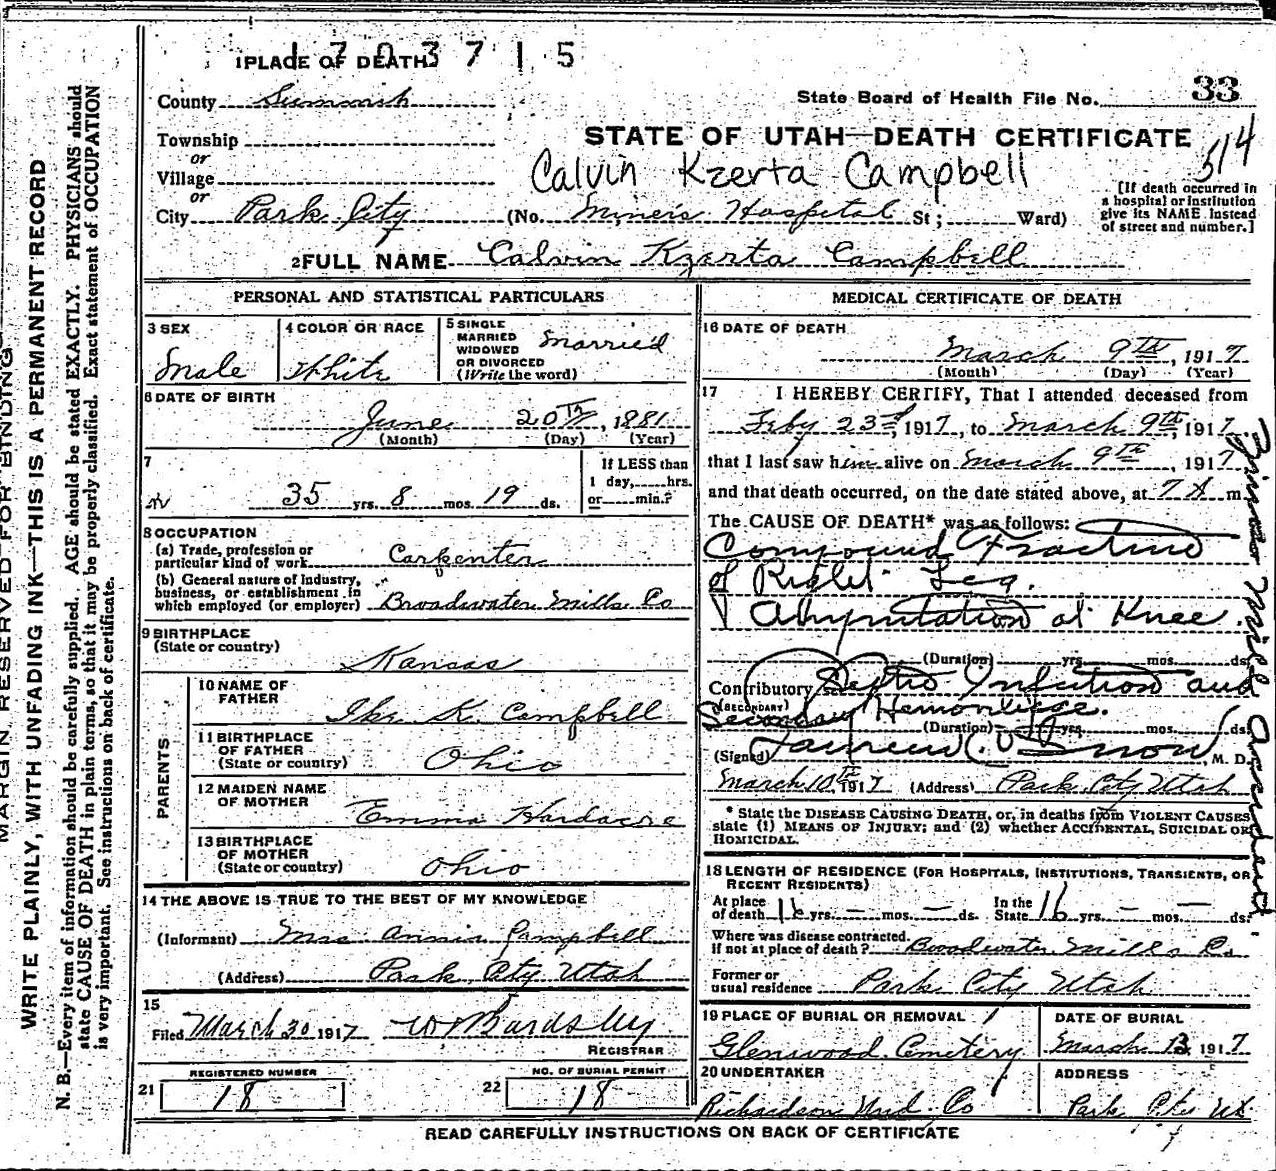 1 7 0 3 7 1 5
1 PLACE OF DEATH
County Summit
State Board of Health File No. 33
Township
STATE OF UTAH—DEATH CERTIFICATE
514
or
Village
Calvin Kzerta Campbell
or
City Park City (No. Miners Hospital St; Ward)
[If death occurred in
a hospital or institution
give its NAME instead
of street and number.]
2 FULL NAME Calvin Kzerta Campbell
PERSONAL AND STATISTICAL PARTICULARS
3 SEX
Male
4 COLOR OR RACE
White
5 SINGLE
MARRIED
WIDOWED
OR DIVORCED
(Write the word)
Married
6 DATE OF BIRTH
June 20th, 1881
(Month) (Day) (Year)
7
35 yrs. 8 mos. 19 ds.
If LESS than
1 day, hrs.
or min.?
8 OCCUPATION
(a) Trade, profession or
particular kind of work Carpenter
(b) General nature of industry,
business, or establishment in
which employed (or employer) Broadwater Mills Co
9 BIRTHPLACE
(State or country)
Kansas
PARENTS
10 NAME OF
FATHER
Ike K. Campbell
11 BIRTHPLACE
OF FATHER
(State or country)
Ohio
12 MAIDEN NAME
OF MOTHER
Emma Hardacre
13 BIRTHPLACE
OF MOTHER
(State or country)
Ohio
14 THE ABOVE IS TRUE TO THE BEST OF MY KNOWLEDGE
(Informant) Mrs Annie Campbell
(Address) Park City Utah
15
Filed March 30 1917 W Bardsley
REGISTRAR
REGISTERED NUMBER
21 18
NO. OF BURIAL PERMIT
22 18
MEDICAL CERTIFICATE OF DEATH
16 DATE OF DEATH
March 9th, 1917
(Month) (Day) (Year)
17 I HEREBY CERTIFY, That I attended deceased from
Feby 23d, 1917, to March 9th, 1917
that I last saw him alive on March 9th, 1917
and that death occurred, on the date stated above, at 7 A m.
The CAUSE OF DEATH* was as follows:
Compound Fracture
of Right Leg.
Amputation at Knee.
(Duration) yrs. mos. ds.
Contributory Septic Infection and
(SECONDARY)
Secondary Hemorrhage.
(Duration) yrs. mos. ds.
(Signed) Snow M. D.
March 10th 1917 (Address) Park City Utah
* State the DISEASE CAUSING DEATH, or, in deaths from VIOLENT CAUSES,
state (1) MEANS OF INJURY; and (2) whether ACCIDENTAL, SUICIDAL OR
HOMICIDAL.
18 LENGTH OF RESIDENCE (FOR HOSPITALS, INSTITUTIONS, TRANSIENTS, OR
RECENT RESIDENTS)
At place
of death 16 yrs. — mos. — ds.
In the
State 16 yrs. — mos. — ds.
Where was disease contracted.
If not at place of death? Broadwater Mills Co
Former or
usual residence Park City Utah
19 PLACE OF BURIAL OR REMOVAL
Glenwood Cemetery
DATE OF BURIAL
March 13, 1917
20 UNDERTAKER
Richardson Und Co
ADDRESS
Park City Ut
Mill Accident
READ CAREFULLY INSTRUCTIONS ON BACK OF CERTIFICATE
MARGIN RESERVED FOR BINDING
WRITE PLAINLY, WITH UNFADING INK—THIS IS A PERMANENT RECORD
N. B.—Every item of information should be carefully supplied. AGE should be stated EXACTLY. PHYSICIANS should
state CAUSE OF DEATH in plain terms, so that it may be properly classified. Exact statement of OCCUPATION
is very important. See instructions on back of certificate.